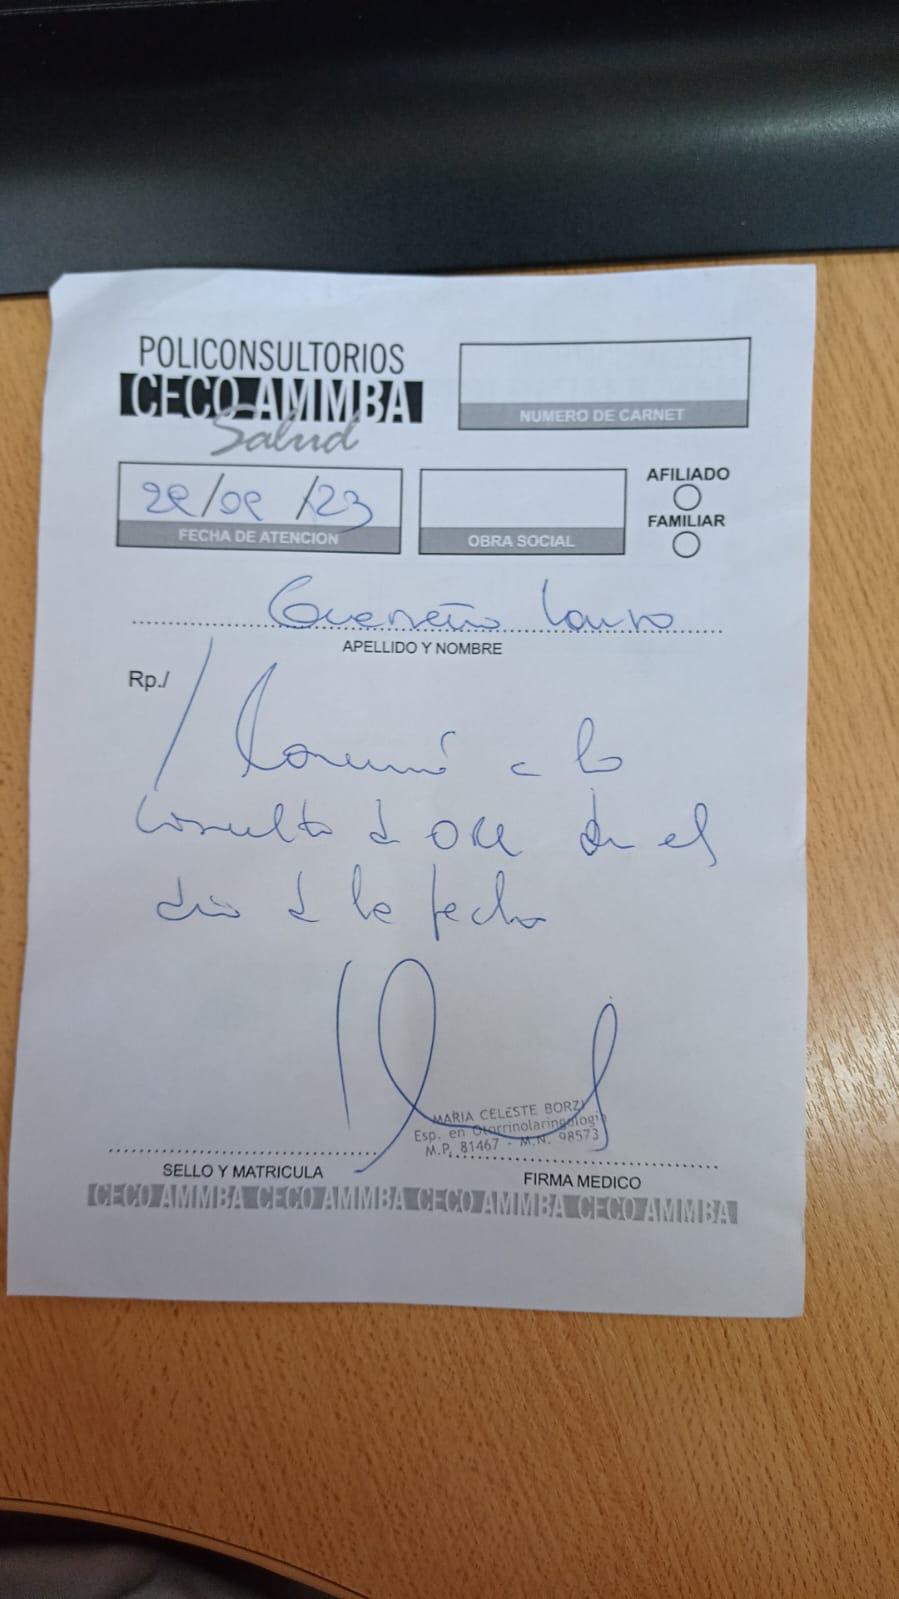 POLICONSULTORIOS
CECO AMMMBA
Salud
NUMERO DE CARNET
22/02/23
FECHA DE ATENCION
OBRA SOCIAL
AFILIADO
FAMILIAR
APELLIDO Y NOMBRE
Rp./
a la
consulta d ORL en el
día d la fecha
MARIA CELESTE BORZI
Esp. en Otorrinolaringologia
M.P. 81467 - M.N. 98573
SELLO Y MATRICULA
FIRMA MEDICO
CECO AMMMBA CECO AMMMBA CECO AMMMBA CECO AMMMBA